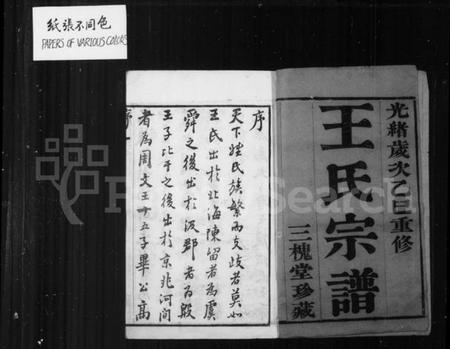 紙張不同色
PAPERS OF VARIOUS COLORS
光緒歲次乙巳重修
王氏宗譜
三槐堂珍藏
序
天下姓氏族繁而支歧者莫如
王氏出於北海陳留者為虞
舜之後出於汲郡者為殷
王子比干之後出於京兆河間
者為周文王十五子畢公高
序一
FamilySearch